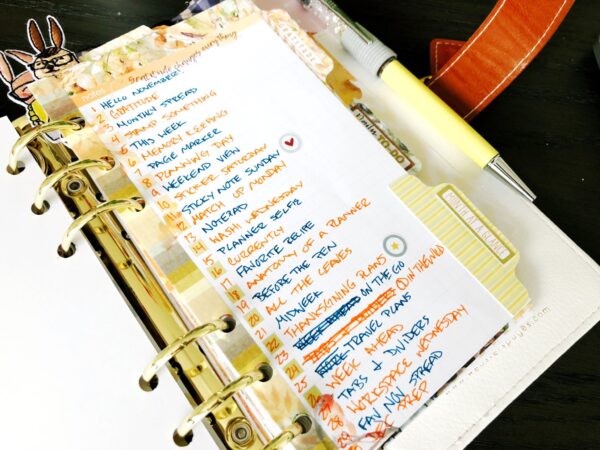 Gratitude changes everything
1 HELLO NOVEMBER!
2 GRATITUDE
3 MONTHLY SPREAD
4 STAMP SOMETHING
5 THIS WEEK
6 MEMORY KEEPING
7 PAGE MARKER
8 PLANNING DAY
9 WEEKEND VIEW
10 STICKER SATURDAY
11 STICKY NOTE SUNDAY
12 MATCH UP MONDAY
13 NOTEPAD
14 WASHI WEDNESDAY
15 PLANNER SELFIE
16 CURRENTLY
17 FAVORITE RECIPE
18 ANATOMY OF A PLANNER
19 BEFORE THE PEN
20 ALL THE LEAVES
21 MIDWEEK
22 THANKSGIVING PLANS
23 ON THE GO
24 IN THE WILD
25 TRAVEL PLANS
26 WEEK AHEAD
27 TABS & DIVIDERS
28 WORKSPACE WEDNESDAY
29 FAV NOV SPREAD
30 DEC PREP
MONTH AT A GLANCE